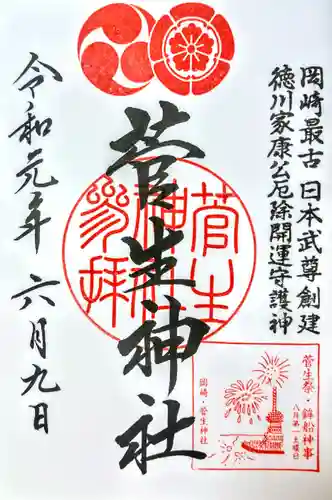 岡崎最古 日本武尊創建
徳川家康公厄除開運守護神
菅生神社
菅生神社参拝
令和元年 六月九日
菅生祭・鉾船神事
八月第一土曜日
岡崎・菅生神社